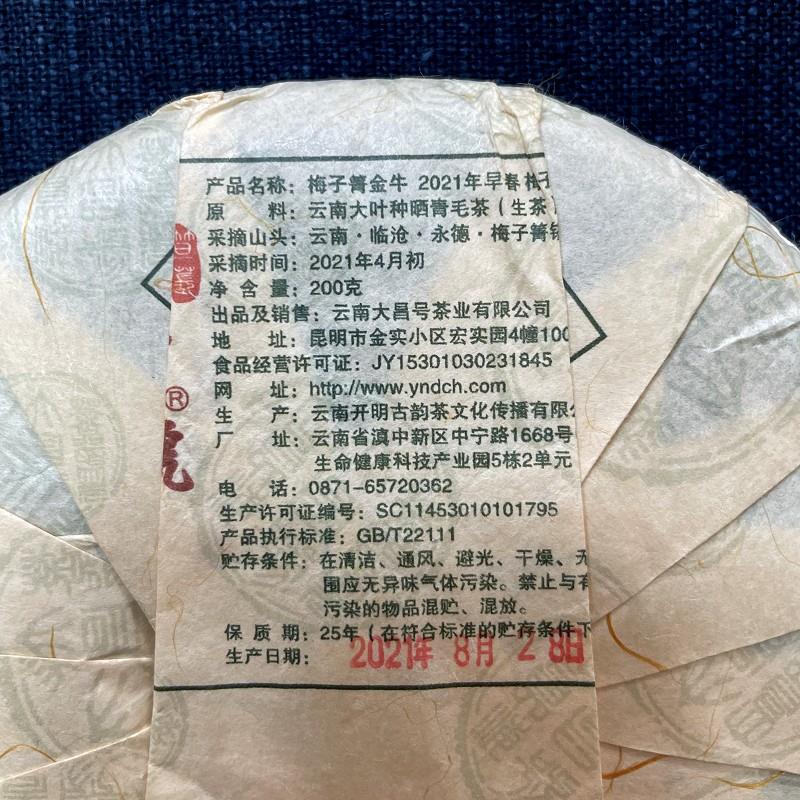 产品名称：梅子箐金牛 2021年早春梅子
原 料：云南大叶种晒青毛茶（生茶）
采摘山头：云南·临沧·永德·梅子箐
采摘时间：2021年4月初
净 含 量：200克
出品及销售：云南大昌号茶业有限公司
地 址：昆明市金实小区宏实园4幢100
食品经营许可证：JY15301030231845
网 址：http://www.yndch.com
®
號
生 产：云南开明古韵茶文化传播有限
厂 址：云南省滇中新区中宁路1668号
生命健康科技产业园5栋2单元
电 话：0871-65720362
生产许可证编号：SC11453010101795
产品执行标准：GB/T22111
贮存条件：在清洁、通风、避光、干燥、无
围应无异味气体污染。禁止与有
污染的物品混贮、混放。
保 质 期：25年（在符合标准的贮存条件下
生产日期：2021年 8月 2 8日